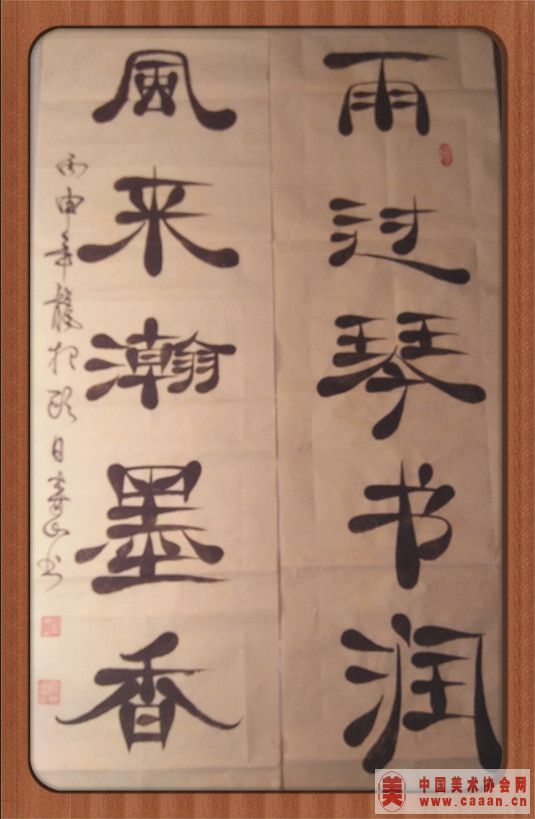 雨过琴书润
風来瀚墨香
丙申年龍抬头日壽山书
中国美术协会网
www.caaan.cn